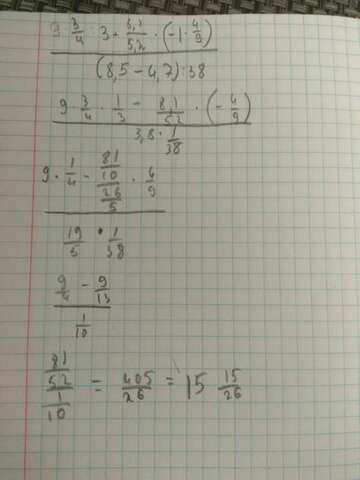 9 3/4 : 3 + 8,1/5,2 · (-1 · 4/9)
(8,5 - 4,7) : 38
9 · 3/4 · 1/3 - 8,1/5,2 · (- 4/9)
3,8 · 1/38
9 · 1/4 - 81/10 / 26/5 · 4/9
19/5 · 1/38
9/4 - 9/13
1/10
81/52 / 1/10 = 405/26 = 15 15/26